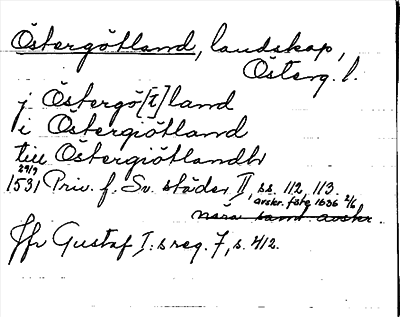 Östergötland, landskap,
Österg. l.
j Östergö[t]land
i Östergiötland
till Östergiötlandh
29/9
1531 Priv. f. Sv. städer II, ss. 112, 113.
avskr. före 1636 2/6
nära samt. avskr.
Jfr Gustaf I:s reg. 7, s. 412.